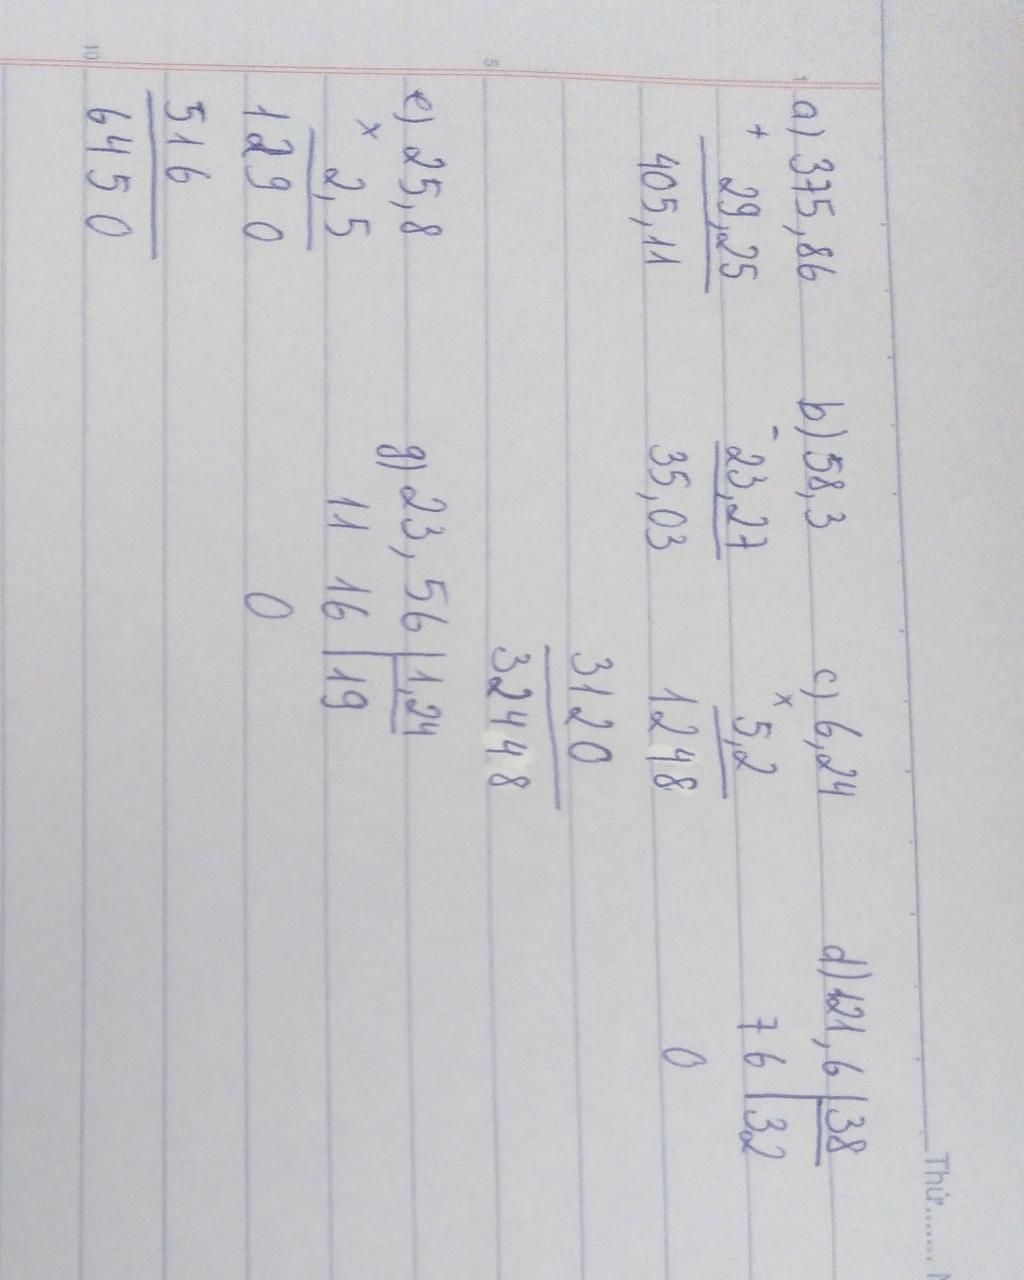 Thứ.......
a) 375,86 b) 58,3 c) 6,24 d) 121,6 38
+ 29,25 - 23,27 x 5,2 76 32
405,11 35,03 1248 0
3120
32448
e) 25,8 g) 23,56 1,24
x 2,5 11 16 19
1290 0
516
6450
1
5
10